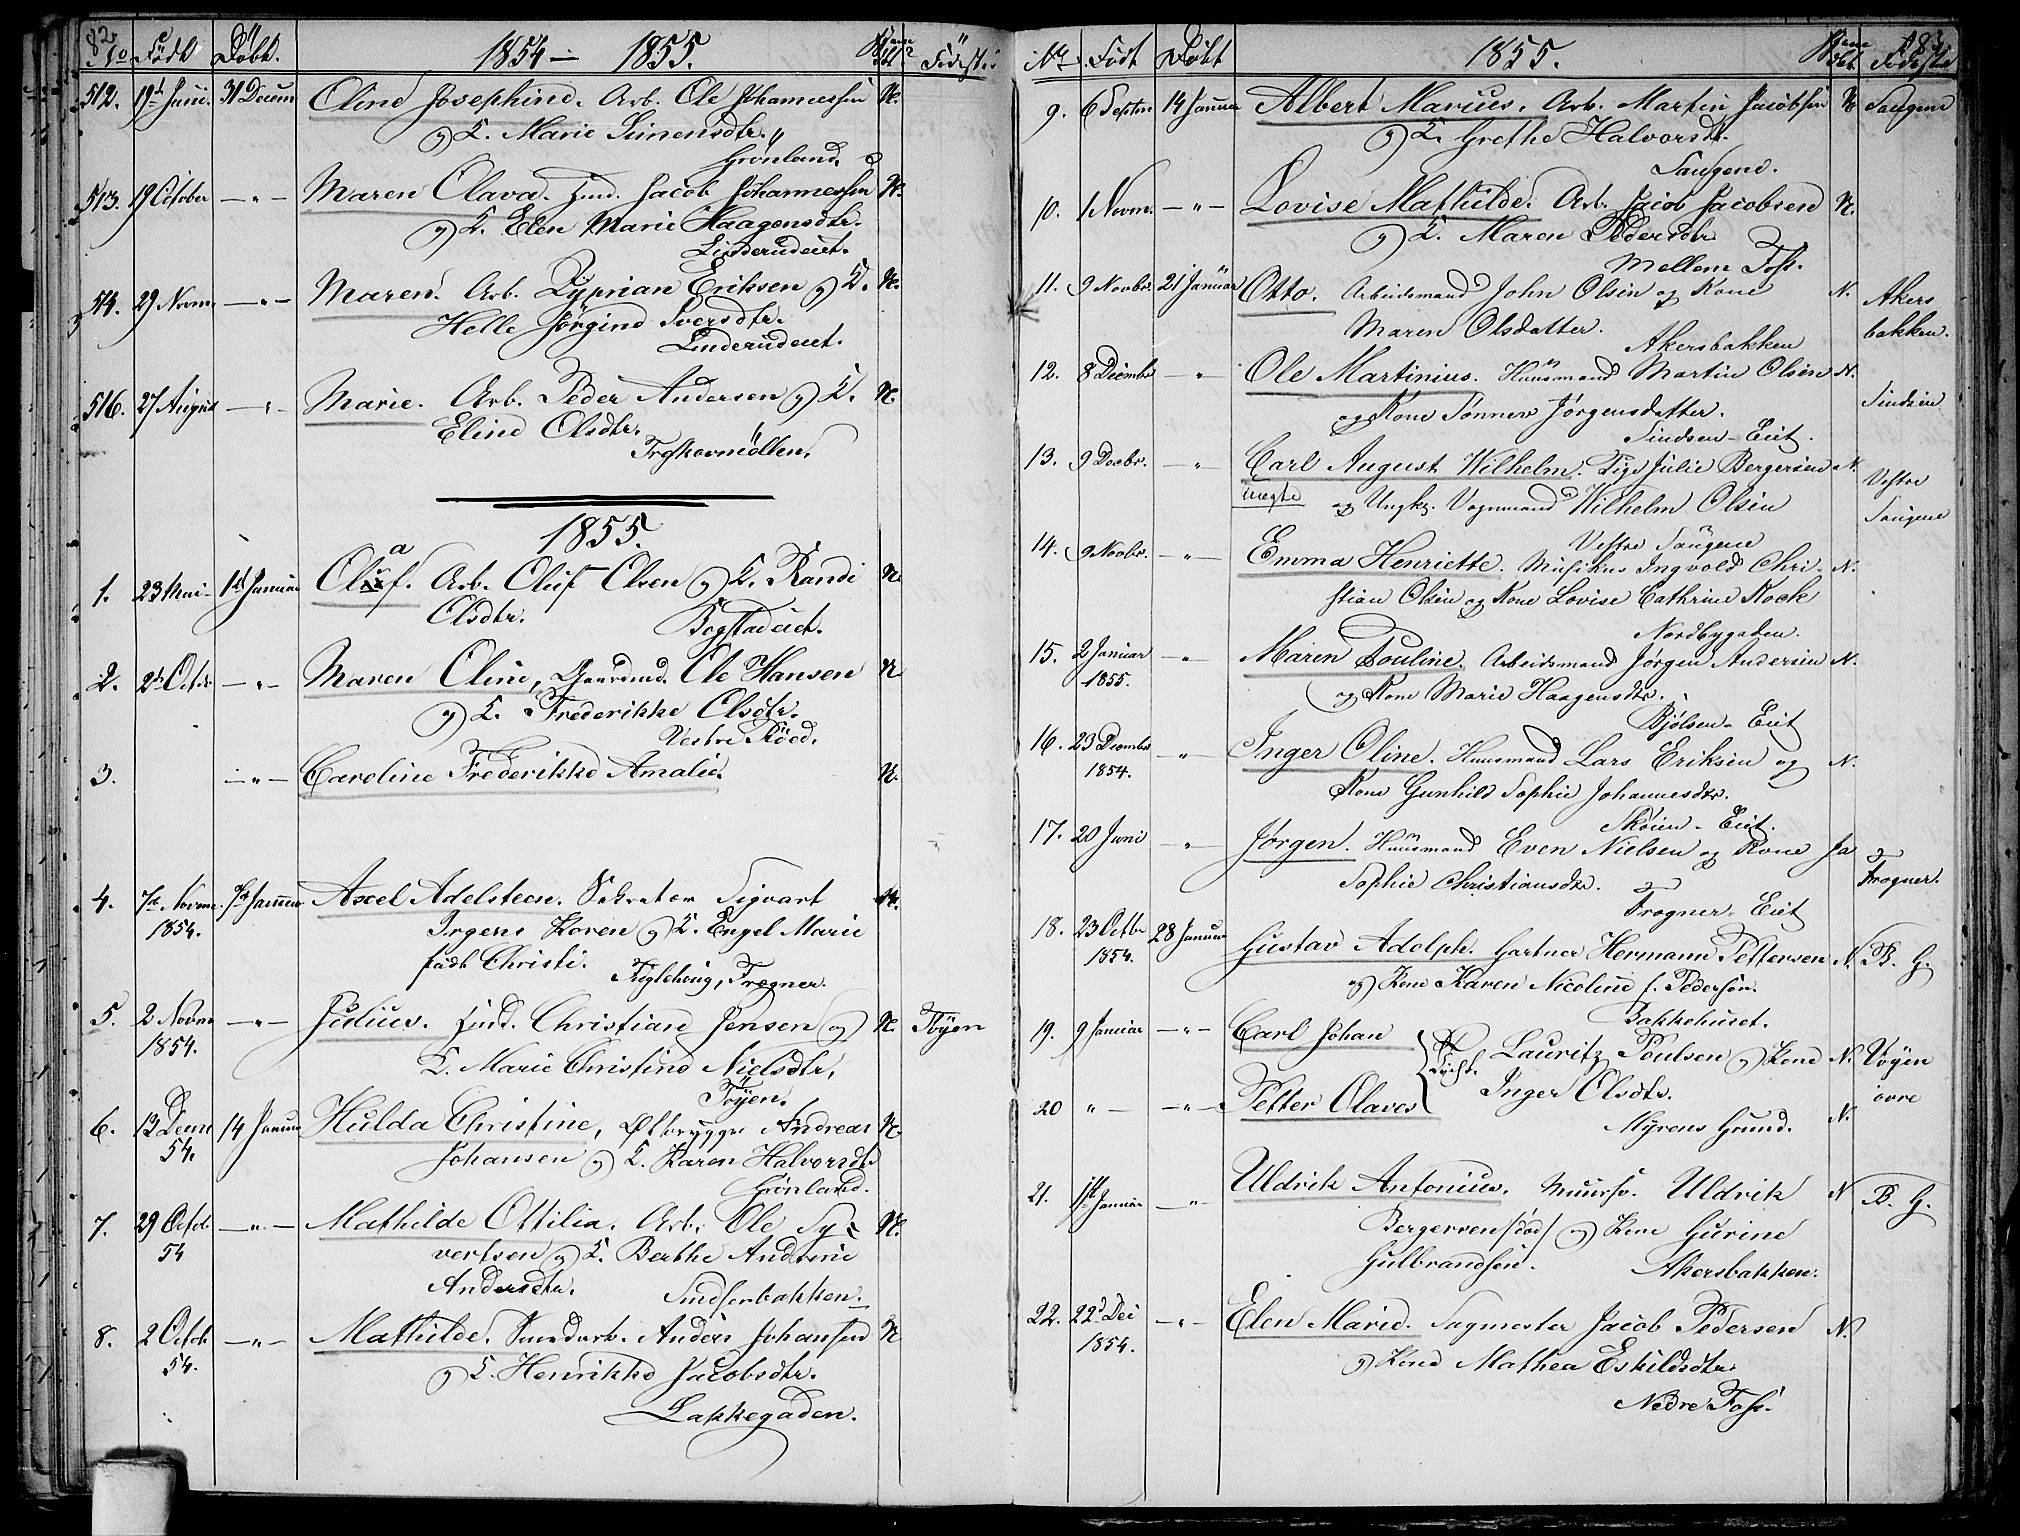 82.
No Födt Döbt. 1854 — 1855. Födest.
512. 19d Juni. 31 Decem Oline Josephine. Arb. Ole Johannessen N.
og K. Marie Simensdtr.
Grönland.
513. 19 October — " — Maren Olava. Huusm. Jacob Johannessen N.
og K. Elen Marie Haagensdtr.
Linderudeiet.
514. 29 Novm — " — Maren. Arb. Zyprian Eriksen og K. N.
Helle Jörgine Iversdtr.
Linderudeiet.
516. 27 August — " — Marie. Arb. Peder Andersen og K. N.
Eline Olsdtr.
Treskowmöllen.
1855.
a
1. 23 Mai 1ste Januar Oluf. Arb. Oluf Olsen og K. Randi N.
Olsdtr. Bogstadeiet.
2. 2d Octbr — " — Maren Oline, Gaardmd. Ole Hansen N
og K. Frederikke Olsdtr.
Vestre Röed.
3. — " — Caroline Frederikke Amalie. N.
4. 7de Novm 7de Januar Axel Adelsteen. Sekretær Sigvart N.
1854. Irgens Koren og K. Engel Marie
födt Christi. Fuglehaug, Frogner.
5. 2 Novm — " — Julius. Huusmd. Christian Jensen og N. Töyen
1854. K. Marie Christine Nielsdtr,
Töyen.
6. 13 Decm 14 Januar Hulda Christine, Ölbrygger Andreas N.
54. Johansen og K. Karen Halvorsdtr
Grönland.
7. 29 Octob — " — Mathilde Ottilia. Arb. Ole Sy- N.
54 vertsen og K. Berthe Andrine
Andersdtr. Sindsenbakken.
8. 2 Octob — " — Mathilde. Smedarb. Anders Johansen N
54. og K. Henrikke Jacobsdtr.
Lakkegaden.
No Födt Döbt 1855. 83. Födested
9. 6 Septm 14 Januar Albert Marius. Arb. Martin Jacobsen N Saugene
og K. Grethe Halvorsdtr.
Saugene.
10. 1 Novm. — " — Lovise Mathilde. Arb. Jacob Jacobsen N.
og K. Maren Pedersdtr
Mellem Foss.
11. 9 Novbr. 21 Januar Otto. Arbeidsmand John Olsen og Kone N. Akers
Maren Olsdatter. bakken.
Akersbakken
12. 8 Decembr " Ole Martinius. Huusmand Martin Olsen N.
og Kone Sønnev Jørgensdatter. Sindsen
Sindsen-Eiet.
13. 9 Decbr. — " — Carl August Wilhelm. Pige Julie Bergersen N. Vestre
uægte og Ungk. Vognmand Wilhelm Olsen Saugene
Vestre Saugene
14. 9 Novbr. — " — Emma Henriette. Musikus Ingvold Chri- N.
stian Olsen og Kone Lovise Cathrine Kock
Nordbygaden.
15. 2 Januar — " — Maren Pouline. Arbeidsmand Jørgen Andersen N.
1855. og Kone Marie Haagensdtr.
Bjølsen-Eiet
16. 23 Decembr " Inger Oline. Huusmand Lars Eriksen og N.
1854. Kone Gunhild Sophie Johannesdtr.
Skøien-Eiet.
17. 20 Juni — " — Jørgen. Huusmand Even Nielsen og Kone Ja
Sophie Christiansdtr. Frogner.
Frogner-Eiet
18. 23 Octbr 28 Januar Gustav Adolph. Gartner Hermann Pettersen N. B. G.
1854. og Kone Karen Nicoline f. Pedersen.
Bakkehuset.
19. 9 Januar — " — Carl Johan Lauritz Poulsen og Kone N. Vöyen
20 " — — " — Petter Olaves Inger Olsdtr. N. övre
Myrens Grund.
21. 1ste Januar — " — Uldrik Antonius. Muursv. Uldrik N B. G.
Bergersen /död/ og Kone Gurine
Gulbrandsen. Akersbakken.
22. 22d Dec — " — Elen Marie. Sagmester Jacob Pedersen N.
1854. og Kone Mathea Eskildsdtr.
Nedre Foss.